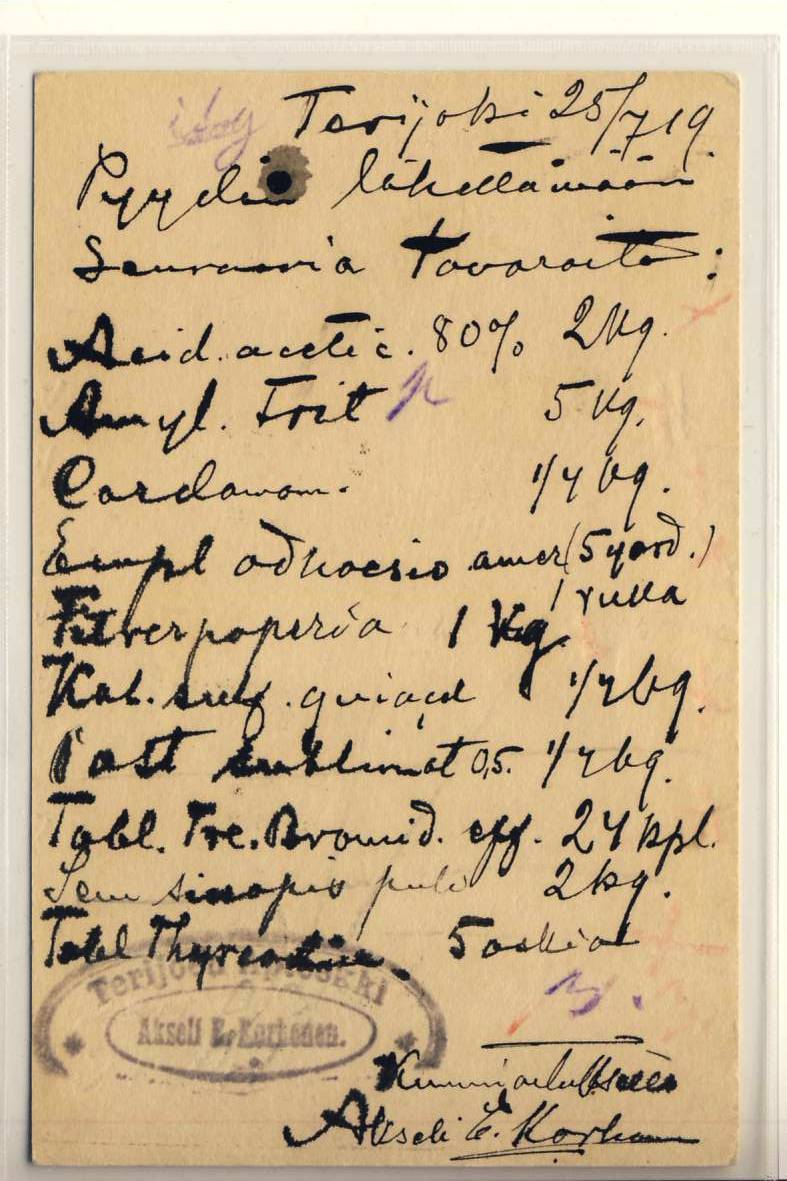 Terijoki 25/7 19.
Pyydän lähettämään
Seuraavia tavaroita:
Acid. acetic. 80% 2 kg.
Amyl. Trit 5 kg.
Cardamom. 1/4 kg.
Empl adhaesiv amer (5 yard.)
1 rulla
Filterpaperia 1 kg.
Kal. sulf. guiacol 1/4 kg.
Past sublimat 0,5. 1/4 kg.
Tabl. Tre. Bromid. eff. 24 kpl.
Sem sinapis pulv 2 kg.
Tabl Thyreoidin. 5 askia
Terijoen Apteekki
Akseli E. Korhonen.
Kunnioituksella
Akseli E. Korhonen